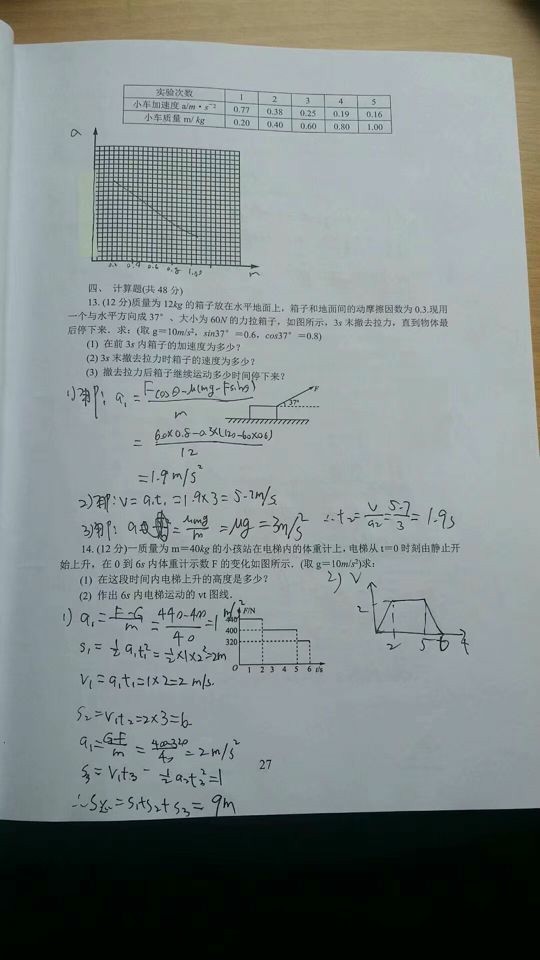 实验次数 1 2 3 4 5
小车加速度 a/m·s⁻² 0.77 0.38 0.25 0.19 0.16
小车质量 m/kg 0.20 0.40 0.60 0.80 1.00
a
0.2 0.4 0.6 0.8 m
四、 计算题(共 48 分)
13. (12 分)质量为 12kg 的箱子放在水平地面上，箱子和地面间的动摩擦因数为 0.3.现用
一个与水平方向成 37°、大小为 60N 的力拉箱子，如图所示，3s 末撤去拉力，直到物体最
后停下来．求：(取 g＝10m/s²，sin37°＝0.6，cos37°＝0.8)
(1) 在前 3s 内箱子的加速度为多少？
(2) 3s 末撤去拉力时箱子的速度为多少？
(3) 撤去拉力后箱子继续运动多少时间停下来？
1) a₁ = Fcosθ-μ(mg-Fsinθ)/m
F 37°
= 60×0.8-0.3×(120-60×0.6)/12
=1.9 m/s²
2) V=a₁t₁=1.9×3=5.7m/s
3) = μmg/m =μg=3m/s² ∴t₂=V/a₂=5.7/3=1.9s
14. (12 分)一质量为 m＝40kg 的小孩站在电梯内的体重计上，电梯从 t＝0 时刻由静止开
始上升，在 0 到 6s 内体重计示数 F 的变化如图所示．(取 g＝10m/s²)求：
(1) 在这段时间内电梯上升的高度是多少？
(2) 作出 6s 内电梯运动的 vt 图线．
2) V
2
2 5 6 t
1) a₁=F-G/m=440-400/40=1 m/s²
F/N
440
400
320
O 1 2 3 4 5 6 t/s
S₁=½a₁t₁²=½×1×2²=2m
V₁=a₁t₁=1×2=2 m/s.
S₂=V₁t₂=2×3=6
a₁=G-F/m=400-320/40=2m/s²
S₃=V₁t₃-½a₂t₃²=1
27
=S₁+S₂+S₃=9m